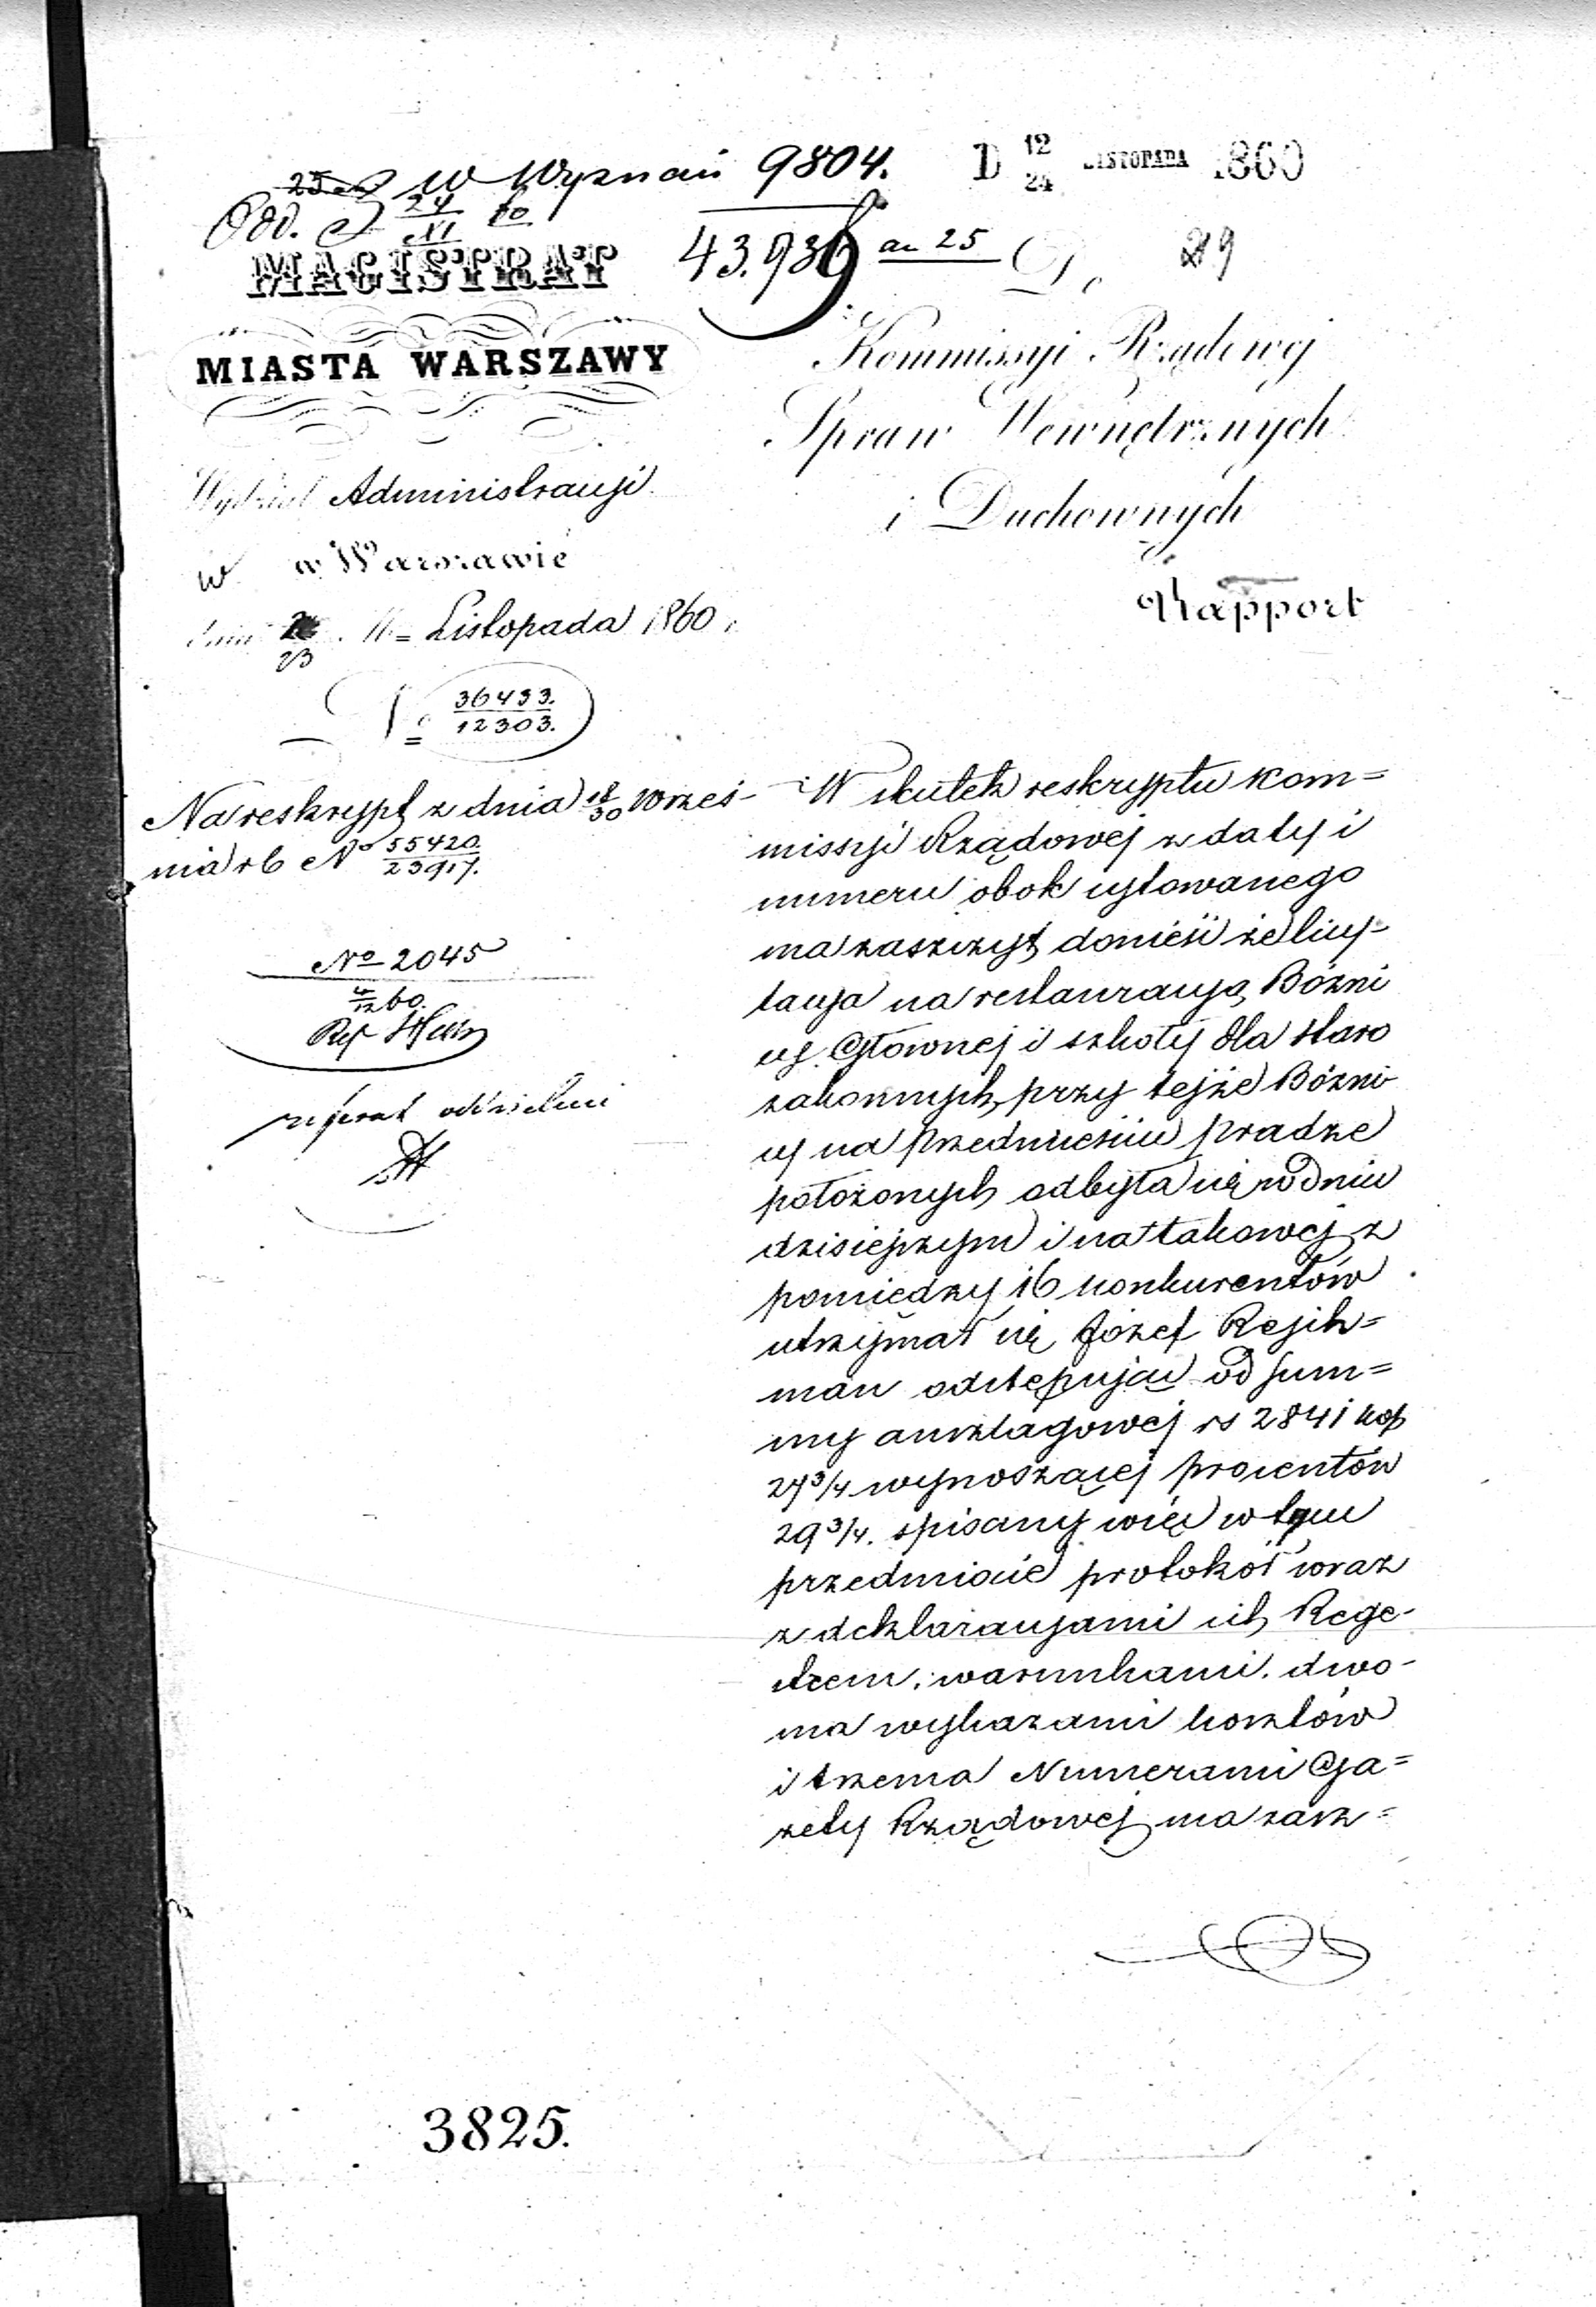 w Wyznań 9804. D 12/24 LISTOPADA 1860
Odd. 24/XI 60
43.936 an 25 Do 29
MAGISTRAT
MIASTA WARSZAWY
Wydział Administracyi
w w Warszawie
dnia 23 Listopada 1860 r.
No 36433./12303.
Na reskrypt z dnia 18/30 Wrześ-
nia rb No 55420./23917.
No 2045
4/12 60.
referat oddzielnie
Kommissyi Rządowej
Spraw Wewnętrznych
i Duchownych
Rapport
W skutek reskryptu Kom=
missyi Rządowej z daty i
numeru obok cytowanego
ma zaszczyt donieść że licy-
tacja na restauracją Bóżni
cy Głównej i szkoły dla staro
zakonnych przy tejże Bóżni
cy na przedmieściu Pradze
położonych odbyła się w dniu
dzisiejszym i na takowej z
pomiędzy 16 konkurentów
utrzymał się Józef Rejch=
man odstępując od sum=
my anszlagowej rs 2841 kop
27 3/4 wynoszącej procentów
29 3/4. spisany więc w tym
przedmiocie protokół wraz
z deklaracyami ich Rege-
strem, warunkami, dwo-
ma wykazami kosztów
i trzema Numerami Ga=
zety Rządowej ma zasz=
3825.